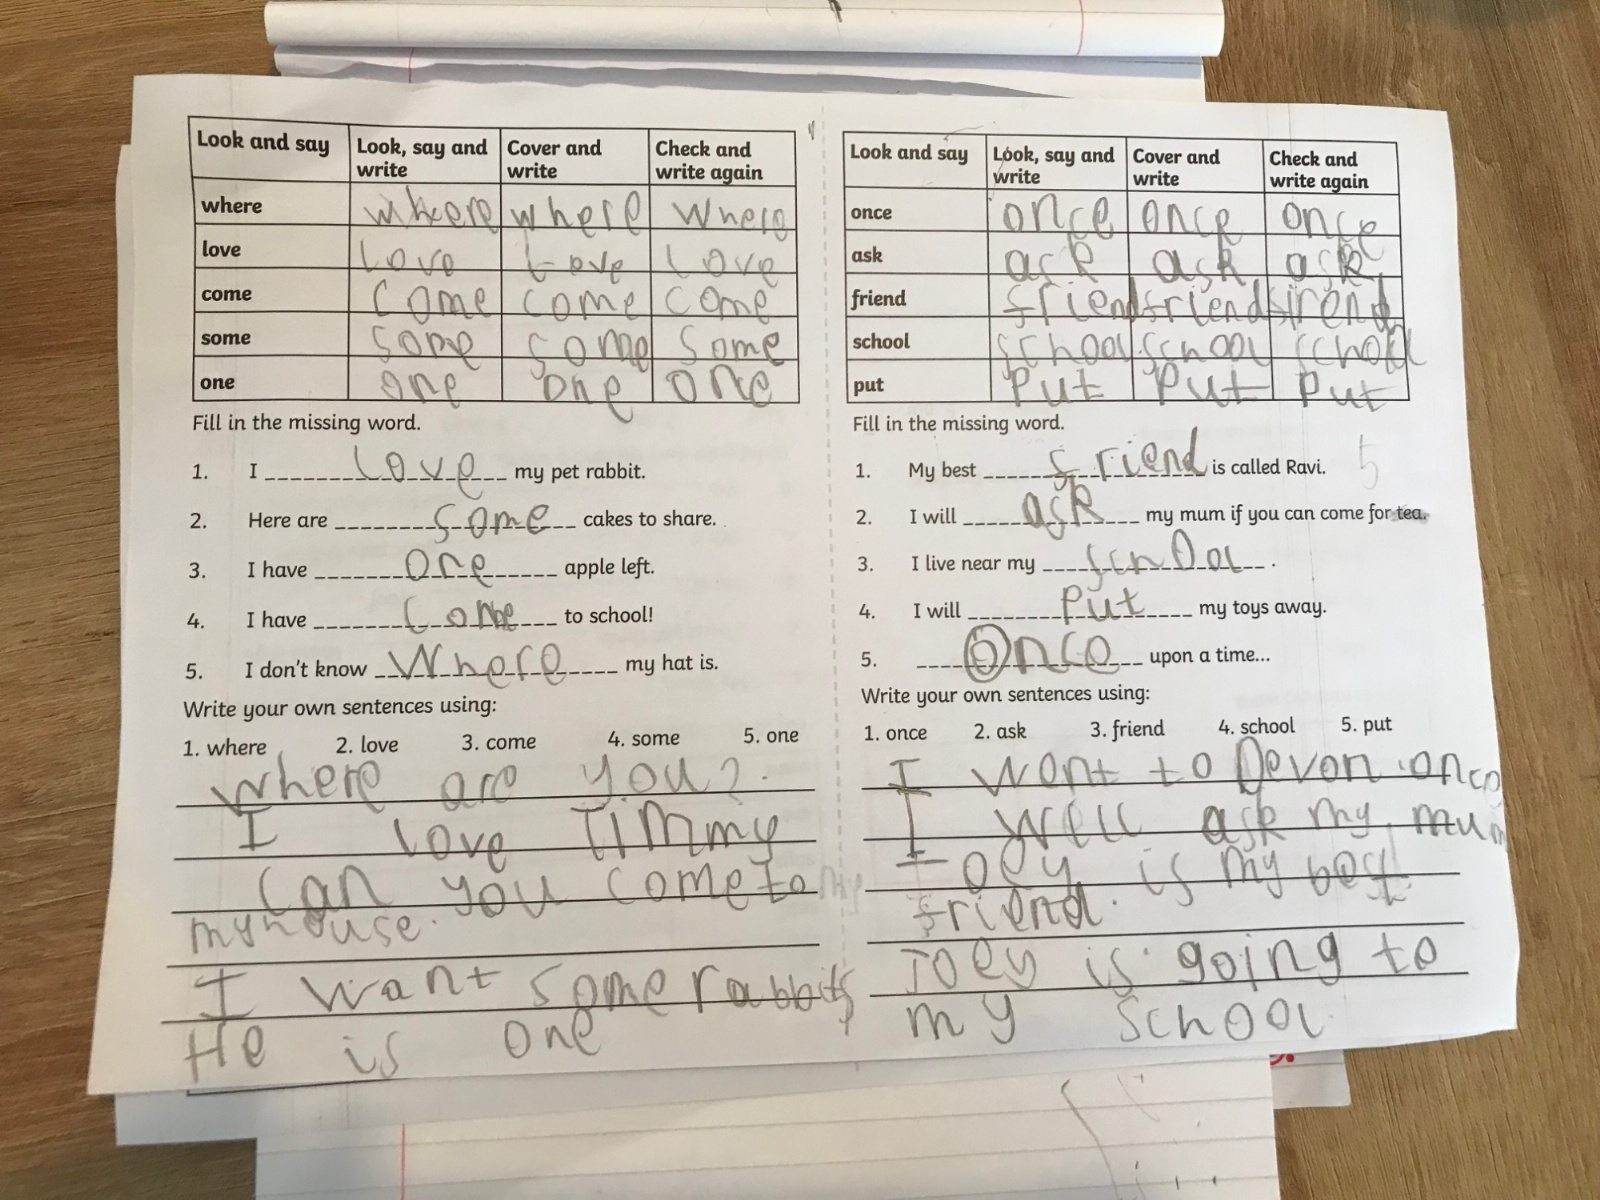 Look and say Look, say and write Cover and write Check and write again
where where where where
love love love love
come come come come
some some some some
one one one one
Fill in the missing word.
1. I love my pet rabbit.
2. Here are some cakes to share.
3. I have one apple left.
4. I have come to school!
5. I don't know where my hat is.
Write your own sentences using:
1. where 2. love 3. come 4. some 5. one
where are you?
I love Timmy
can you come to my
my house.
I want some rabbits
He is one
Look and say Look, say and write Cover and write Check and write again
once once once once
ask ask ask ask
friend friend friend firend
school school school school
put put put put
Fill in the missing word.
1. My best friend is called Ravi. 5
2. I will ask my mum if you can come for tea.
3. I live near my school.
4. I will put my toys away.
5. Once upon a time...
Write your own sentences using:
1. once 2. ask 3. friend 4. school 5. put
I want to Devon once
I well ask my mum
Joey is my best
friend.
Joey is going to
my school.